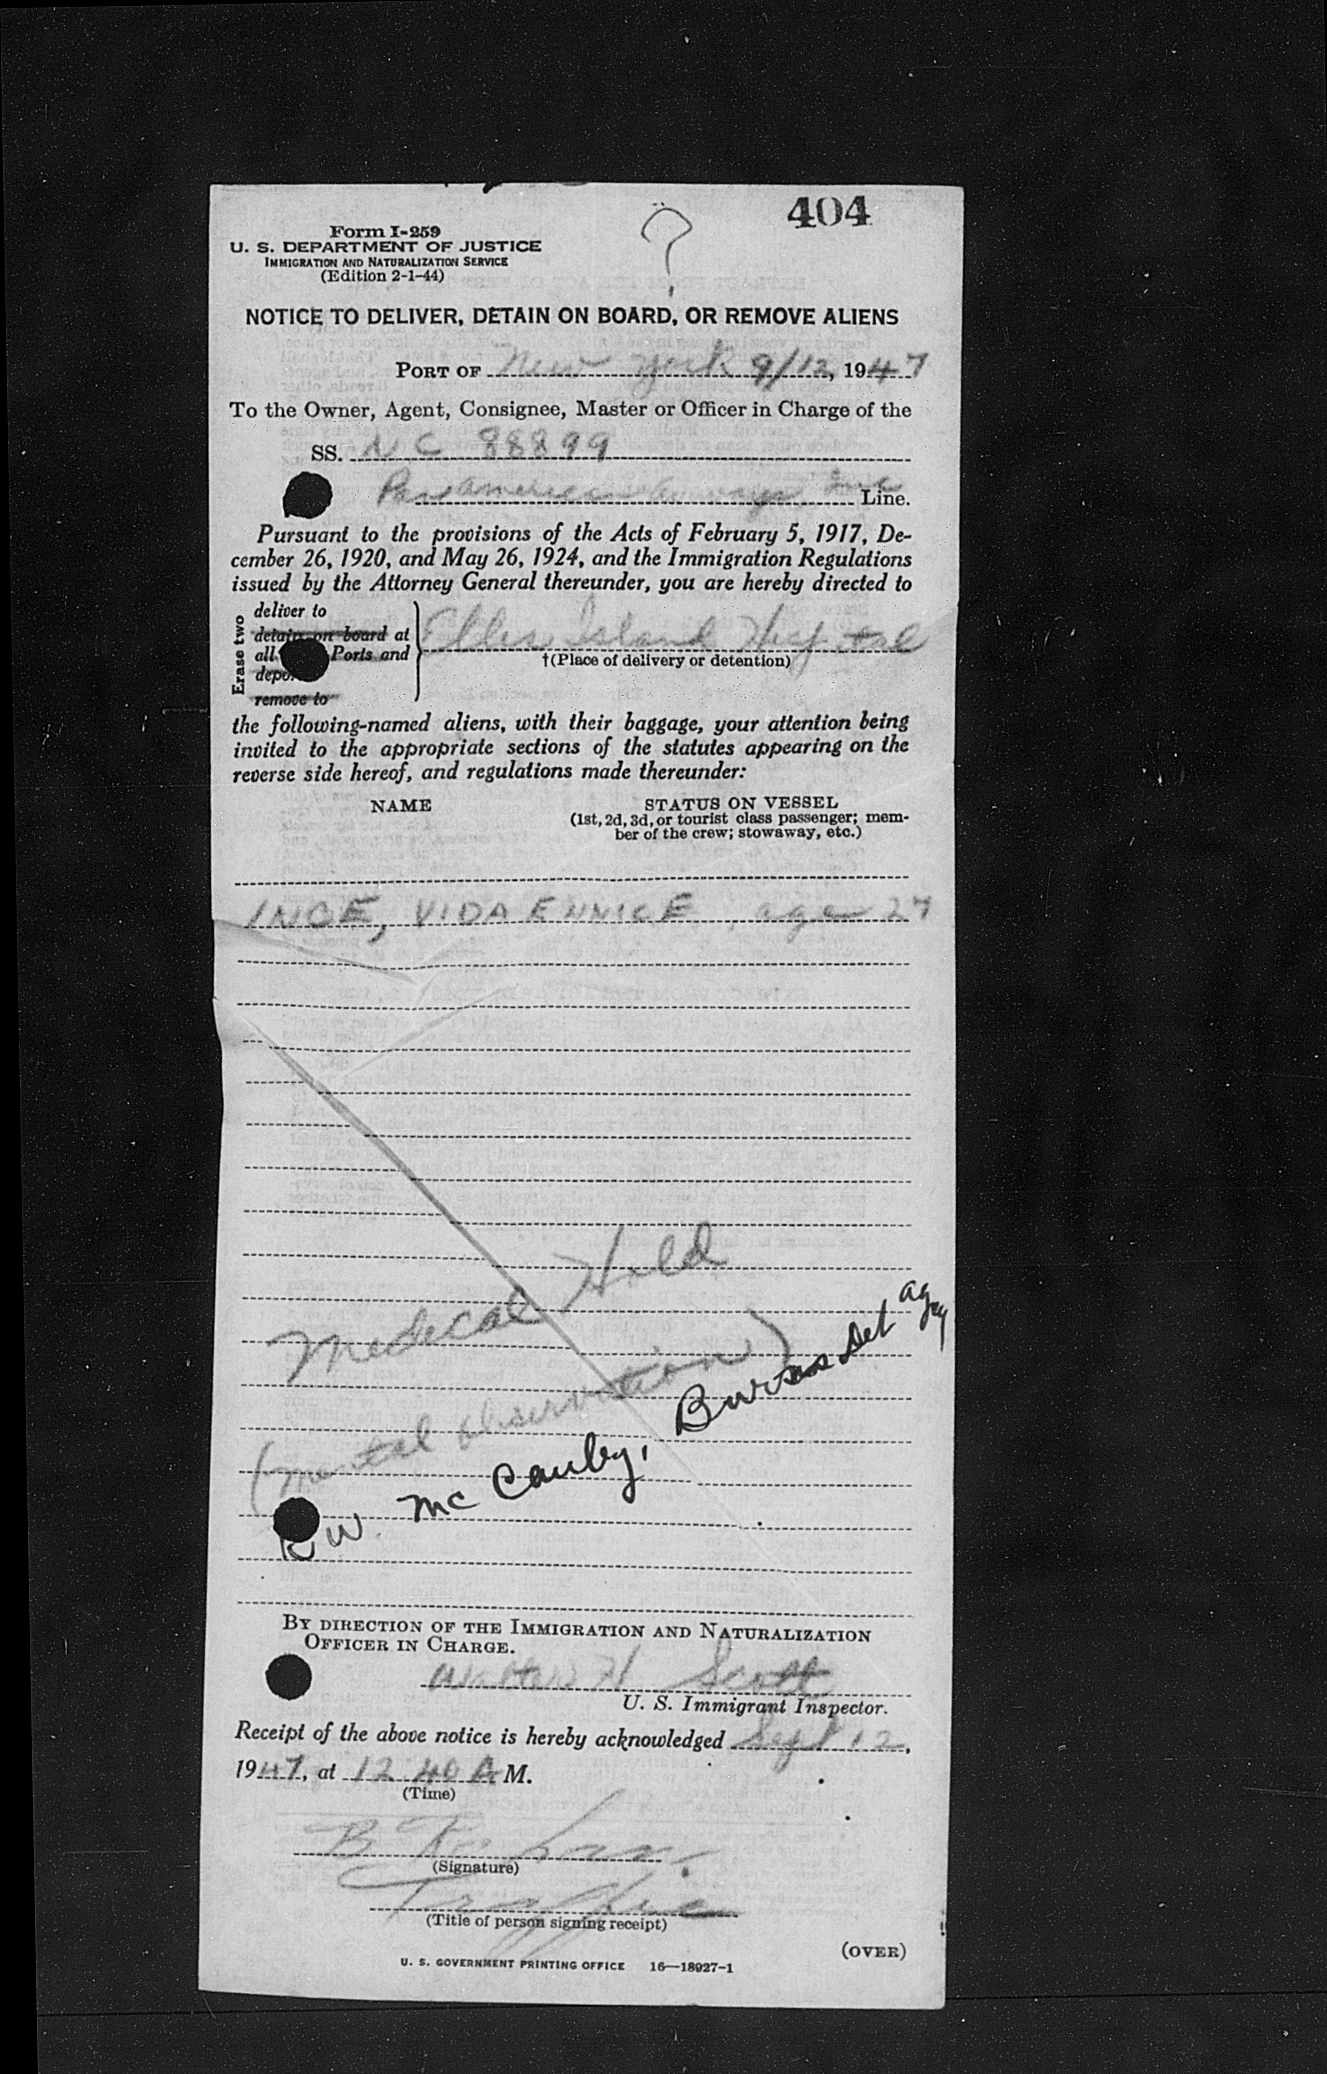 404
?
Form I-259
U. S. DEPARTMENT OF JUSTICE
IMMIGRATION AND NATURALIZATION SERVICE
(Edition 2-1-44)
NOTICE TO DELIVER, DETAIN ON BOARD, OR REMOVE ALIENS
PORT OF New York 9/12, 1947
To the Owner, Agent, Consignee, Master or Officer in Charge of the
SS. NC 88899
Panamerican Airways, Inc Line.
Pursuant to the provisions of the Acts of February 5, 1917, De-
cember 26, 1920, and May 26, 1924, and the Immigration Regulations
issued by the Attorney General thereunder, you are hereby directed to
Erase two
deliver to
detain on board at
all Ports and
remove to
Ellis Island Hospital
†(Place of delivery or detention)
the following-named aliens, with their baggage, your attention being
invited to the appropriate sections of the statutes appearing on the
reverse side hereof, and regulations made thereunder:
NAME
STATUS ON VESSEL
(1st, 2d, 3d, or tourist class passenger; mem-
ber of the crew; stowaway, etc.)
INCE, VIDA EUNICE, age 27
Medical Hold
(mental observation)
W. McCauley, Burns Det agcy
BY DIRECTION OF THE IMMIGRATION AND NATURALIZATION
OFFICER IN CHARGE.
Walter H Scott
U. S. Immigrant Inspector.
Receipt of the above notice is hereby acknowledged Sept 12,
1947, at 12 40 A M.
(Time)
B
(Signature)
Traffic
(Title of person signing receipt)
(OVER)
U. S. GOVERNMENT PRINTING OFFICE 16—18927-1